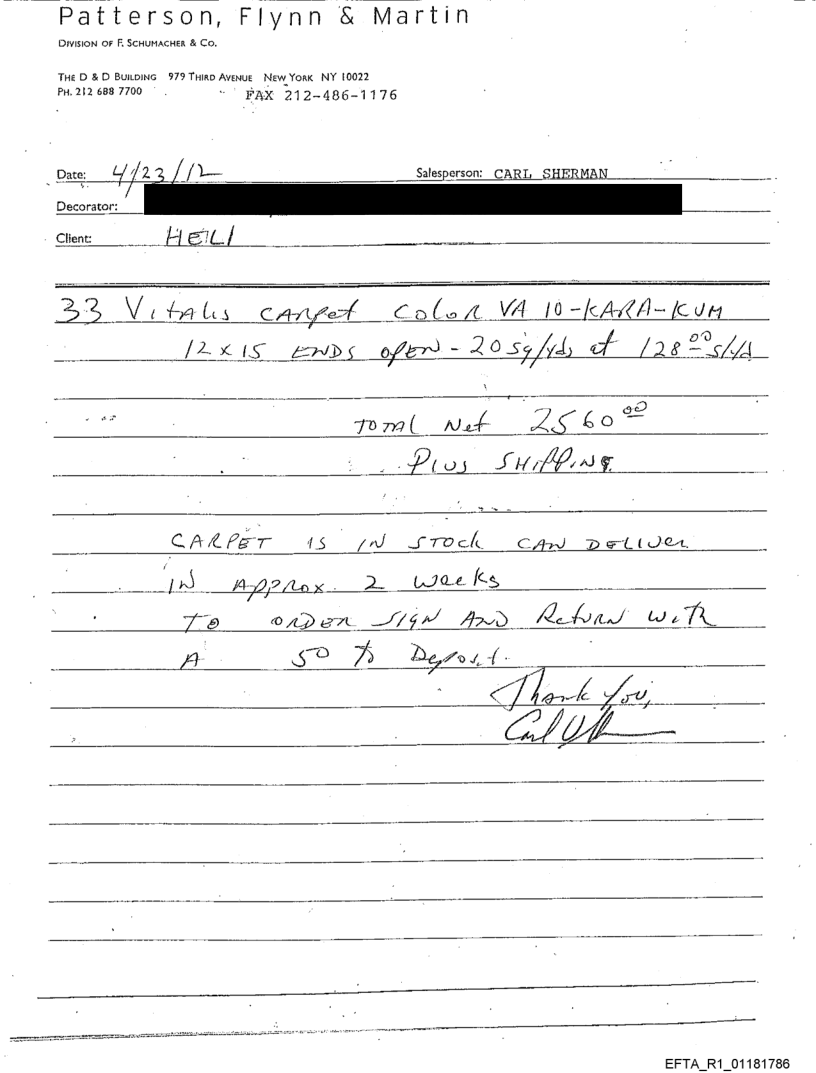 Patterson, Flynn & Martin
DIVISION OF F. SCHUMACHER & CO.
THE D & D BUILDING 979 THIRD AVENUE NEW YORK NY 10022
PH. 212 688 7700 FAX 212-486-1176
Date: 4/23/12 Salesperson: CARL SHERMAN
Decorator:
Client: HEILI
33 Vitalis CARpet Color VA 10-KARA-KUM
12 x 15 ENDS OPEN - 20 Sq/yds at 128.00 s/yd
TOTAl Net 2560.00
Plus SHIPPING
CARPET IS IN STOCK CAN DELIVER
IN APPROX. 2 Weeks
TO ORDER SIGN AND Return With
A 50 % Deposit.
Thank You,
Carl
EFTA_R1_01181786